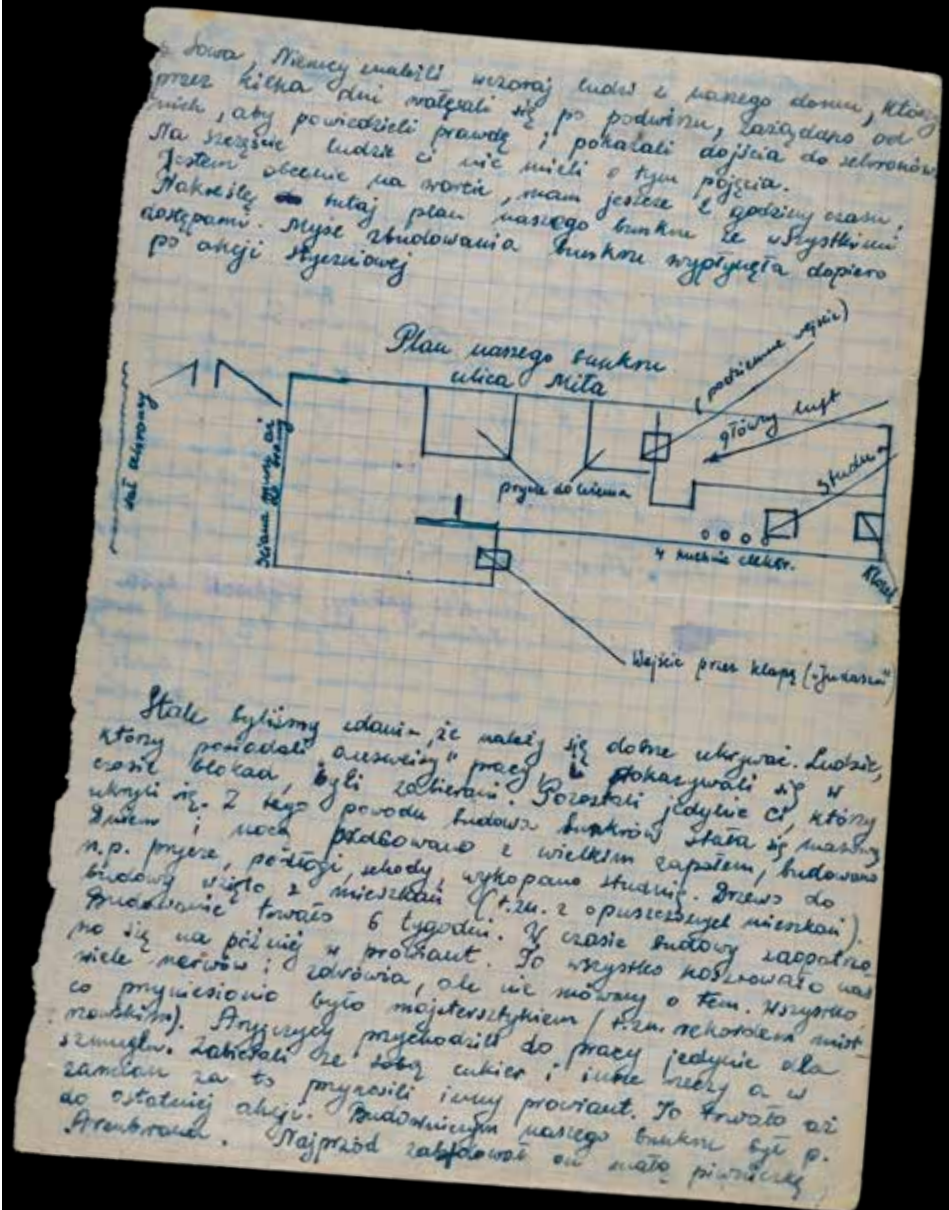 Sowa, Niemcy znaleźli wczoraj ludzi z naszego domu, którzy
przez kilka dni wałęsali się po podwórzu, zażądano od
nich, aby powiedzieli prawdę i pokazali dojścia do schronów.
Na szczęście ludzie ci nie mieli o tym pojęcia.
Jestem obecnie na warcie, mam jeszcze 2 godziny czasu.
Nakreślę tutaj plan naszego bunkru ze wszystkimi
dostępami. Myśl zbudowania bunkru wypłynęła dopiero
po akcji styczniowej
Plan naszego bunkru
ulica Miła
(podziemne wejście)
główny luft
studnia
schrony
ściana muru aż
do bramy
prycze do
4 kuchnie elektr.
Klozet
Wejście przez klapę („Judasza")
Stale byliśmy zdania, że należy się dobrze ukrywać. Ludzie,
którzy posiadali pracy, pokazywali się w
czasie blokad, byli zabierani. Pozostali jedynie ci, którzy
ukryli się. Z tego powodu budowa bunkrów stała się masową
Dniem i nocą z wielkim zapałem, budowano
n.p. prycze, podłogi, schody, wykopano studnię. Drzewo do
budowy wzięto z mieszkań (t.zn. z opuszczonych mieszkań).
Budowanie trwało 6 tygodni. W czasie budowy zaopatrzo
no się na później w prowiant. To wszystko kosztowało nas
wiele nerwów i zdrówia, ale nie mówmy o tem. Wszystko,
co przyniesiono było majstersztykiem (t.zn. rekordem mist
rzowskim). Aryjczycy przychodzili do pracy jedynie dla
szmuglu. Zabierali ze sobą cukier i inne rzeczy a w
zamian za to przynosili inny prowiant. To trwało aż
do ostatniej akcji. Budowniczym naszego bunkru był p.
Najprzód zabudował on małą piwniczkę,